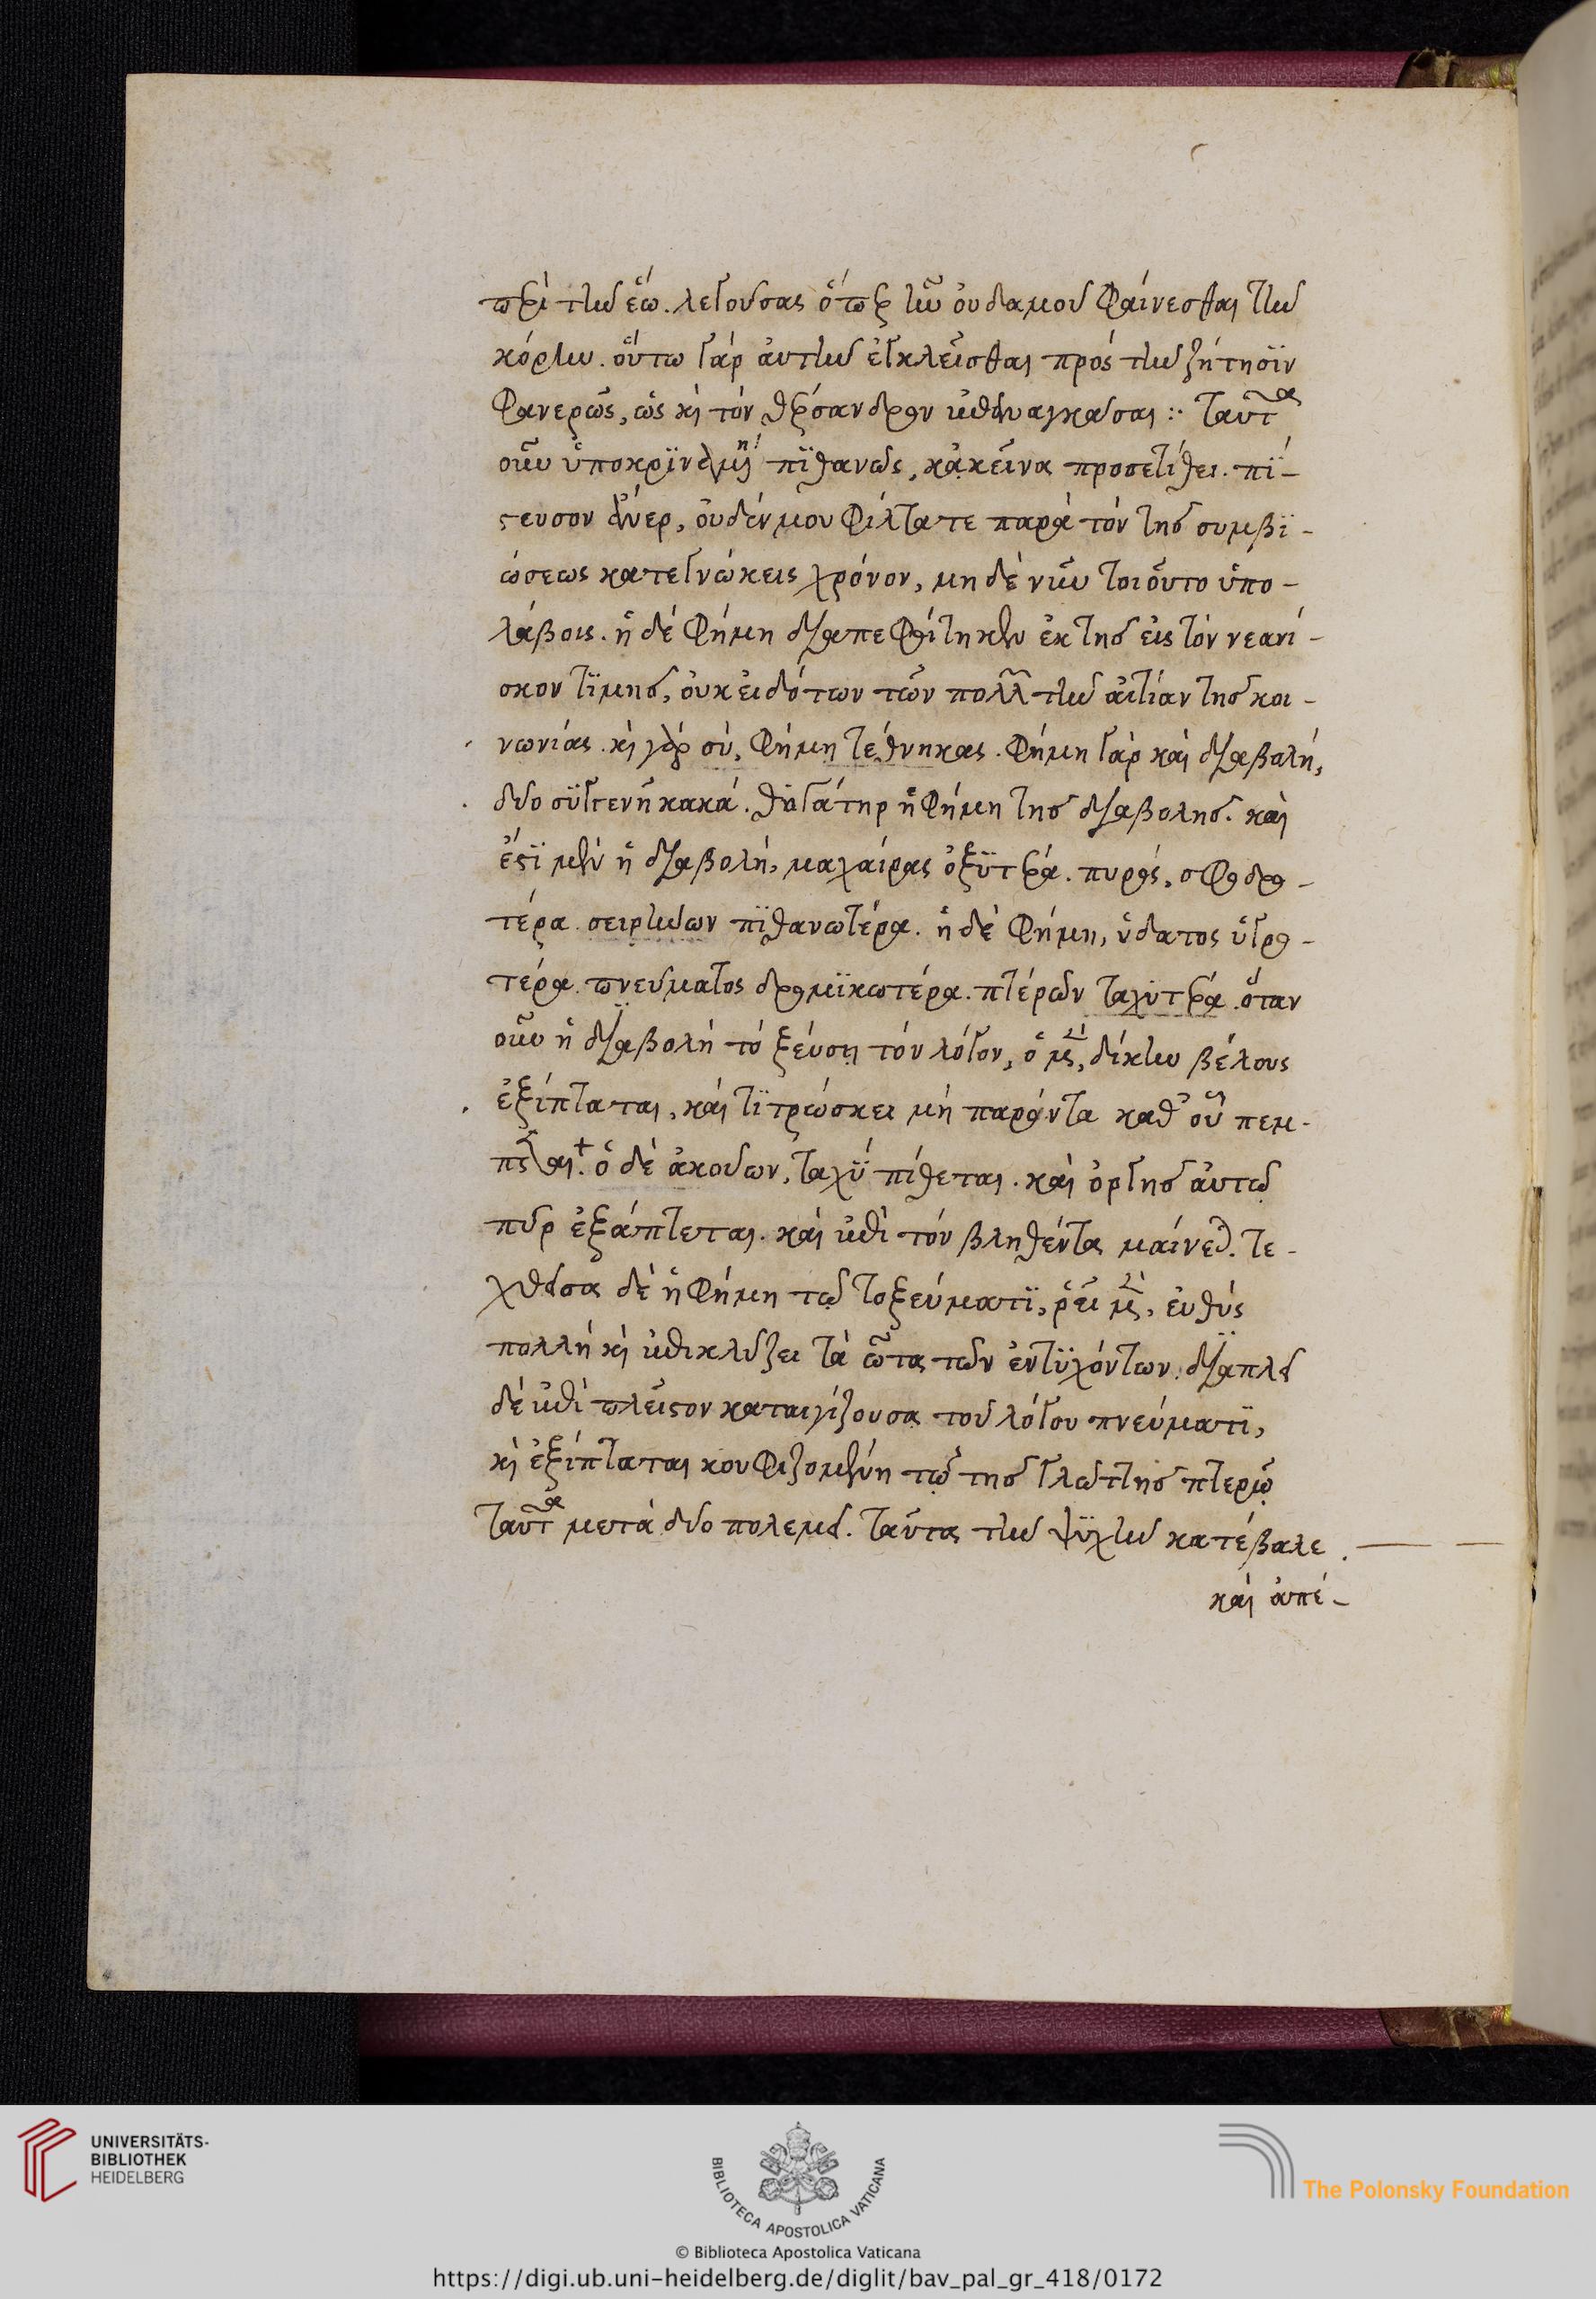 περὶ τὴν ἕω. λεγούσας ὅπερ ἦν οὐδαμοῦ φαίνεσθαι τὴν
κόρην. οὕτω γὰρ αὐτὴν ἐγκλεῖσθαι πρὸς τὴν ζήτησϊν
φανερῶς, ὡς καὶ τὸν θέρσανδρον ἐπαναγκάσαι :· ταῦτα
οὖν ὑποκρϊναμένη πϊθανῶς, κἀκεῖνα προσετίθει. πί-
στευσον ἄνερ, οὐδέν μου φίλτατε παρὰ τὸν τῆς συμβϊ-
ώσεως κατεγνώκεις χρόνον, μηδὲ νῦν τοιοῦτο ὑπο-
λάβοις. ἡ δὲ φήμη διαπεφοίτηκεν ἐκ τῆς εἰς τὸν νεανί-
σκον τϊμῆς, οὐκ εἰδότων τῶν πολλ τὴν αἰτίαν τῆς κοι-
νωνίας. καὶ γὰρ σὺ, φήμη τέθνηκας. φήμη γὰρ καὶ διαβολή,
δύο συγγενῆ κακά. θυγάτηρ ἡ φήμη τῆς διαβολῆς. καὶ
ἐστϊ μὲν ἡ διαβολή, μαχαίρας ὀξυτέρα. πυρός, σφοδρο-
τέρα. σειρήνων πϊθανωτέρα. ἡ δὲ φήμη, ὕδατος ὑγρο-
τέρα. πνεύματος δρομϊκωτέρα. πτερῶν ταχυτέρα. ὅταν
οὖν ἡ διαβολὴ τοξεύση τὸν λόγον, ὁ μὲν, δίκην βέλους
ἐξίπταται, καὶ τϊτρώσκει μὴ παρόντα καθ' οὗ πεμ-
πεται. ὁ δὲ ἀκούων, ταχὺ πίθεται. καὶ ὀργῆς αὐτῷ
πῦρ ἐξάπτεται. καὶ ἐπὶ τὸν βληθέντα μαίνεται. τε-
χθεῖσα δὲ ἡ φήμη τῷ τοξεύματϊ, ῥεῖ μὲν, εὐθὺς
πολλὴ καὶ ἐπικλύζει τὰ ὦτα τῶν ἐντϋχόντων. διαπλεῖ
δὲ ἐπὶ πλεῖστον καταιγίζουσα τοῦ λόγου πνεύματϊ,
καὶ ἐξίπταται κουφιζομένη τῷ τῆς γλώττης πτερῷ
ταῦτα μετὰ δύο πολεμεῖ. ταῦτα τὴν ψϋχὴν κατέβαλε.
καὶ ἀπέ-
UNIVERSITÄTS-
BIBLIOTHEK
HEIDELBERG
BIBLIOTECA APOSTOLICA VATICANA
The Polonsky Foundation
© Biblioteca Apostolica Vaticana
https://digi.ub.uni-heidelberg.de/diglit/bav_pal_gr_418/0172